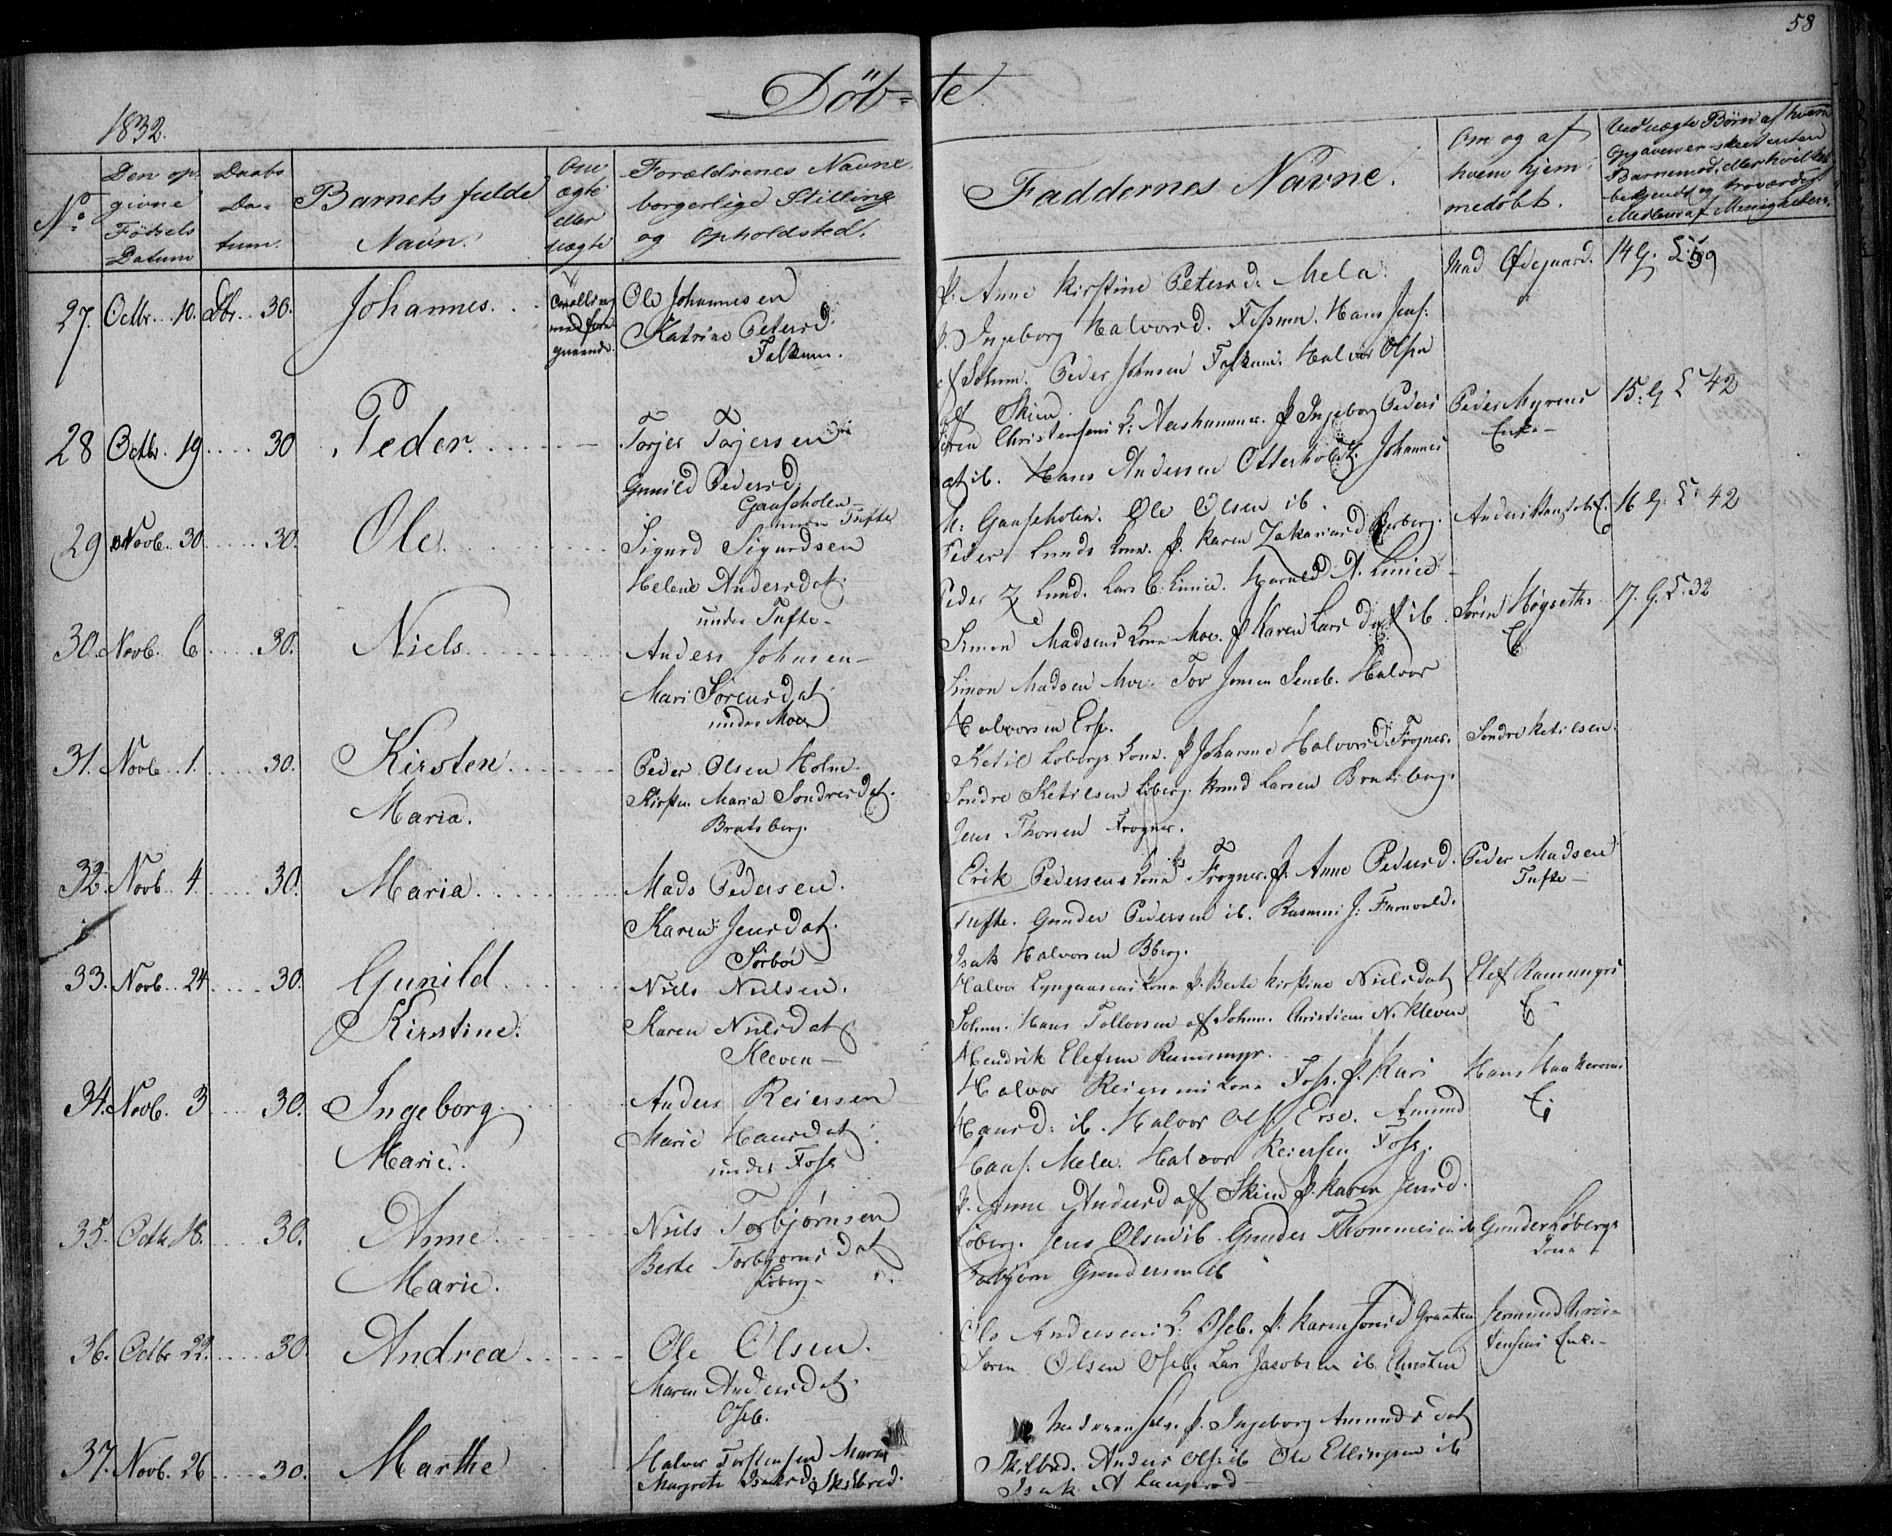 58
Döb=te
1832.
No.
Den opgivne Fødsels Datum
Daabs Datum.
Barnets fulde Navn.
Om ægte eller uægte
Forældrenes Navne borgerlige Stilling og Opholdsted.
Faddernes Navne.
Om og af hvem hjemmedøbt.
Ved uægte Børn af hvem Opgaven er skeet enten Barnemod. eller
27. Octbr. 10. Dbr. 30. Johannes.
Ole Johannesen
Katrine Petersd.
Falkum.
P. Anne Kirstine Petersd. Mela.
P. Ingeborg Halvorsd. Fossum. Hans Jens.
af Solum. Peder Johnsen Falkum. Halvor Olsen
af Skien.
Mad Ødegaard.
14 G.
28 Octbr. 19. 30 Peder.
Torjer Torjersen
Gunild Pedersd.
Gaasholen
Søren Christensens K. Aashammer. P. Ingeborg Peders
at ib. Hans Andersen Otterholt. Johannes
N: Gaaseholen. Ole Olsen ib.
Peder Myrens
Enke
15. G. L 42
29 Novb. 30. 30. Ole.
under Tufte
Sigurd Sigurdsen
Helene Andersdat.
under Tufte
Peder Lunds Kone. P. Karen Zakariasd.
Peder Z Lund. Lars C. Linie. Harald A. Linie
16 G. L. 42
30. Novb. 6 30. Niels
Anders Johnsen
Mari Sørensdat.
under Moe
Simon Madsens Kone Moe. P. Karen Larsdat ib.
Simon Madsen Moe. Tov Jonsen Seneb. Halvor
Halvorsen Ers.
Sørin Høgseths
E
17. G. L. 32
31. Novb. 1. 30. Kirsten
Maria.
Peder Olsen Holm.
Kirsten Maria Sondresdat.
Bratsberg.
Ketil Lobergs Kone. P. Johanne Halvorsd. Frogner.
Sondre Ketilsen Loberg. Knud Larsen Bratsberg.
Jens Thorsen Frogner.
Sondre Ketilsen.
32 Novb. 4. 30. Maria
Mads Pedersen.
Karen Jensdat.
Sørbø
Erik Pedersens Kone Frogner. P. Anne Pedersd.
Tufte. Gunder Pedersen ib. Rasmus J. Furuvald.
Isak Halvorsen Bberg.
Peder Madsen
Tufte
33. Novb. 24. 30. Gunild
Kirstine.
Niels Nielsen.
Karen Nielsdat
Kleven
Halvor Lyngaasens Kone P. Berte Kirstine Nielsdat
Solum. Hans Tollovsen af Solum. Christian N. Kleven
Hendrik Elefsen Ramsmyr.
Elef Ramsmyrs
E
34. Novb. 3 30. Ingeborg
Marie.
Anders Reiersen
Marie Hansdat.
under Foss
Halvor Reiersens Kone Foss. P. Kari
Hansd: ib. Halvor Ols. Ersv. Amund
Hans. Mela. Halvor Reiersen Foss.
Hans Haakersens
E
35. Octbr. 18. 30. Anne
Marie.
Niels Torbjørnsen
Berte Torbjørnsdat
Loberg
P. Anne Andersd af Skien P. Karen Jensd.
Loberg. Jens Olsen ib. Gunder Thommesen ib.
Torbjørn Gundersen ib
Gunder Løbergs
Kone
36. Octbr 22. 30. Andrea
Ole Olsen.
Maren Andersdat.
Oseb.
Ole Andersens K. Oseb. P. Karen Jonsd Graaten
Søren Olsen Oseb. Lars Jacobsen ib. Carsten
Jermund Chris
tensens Enke
37. Novb. 26 30. Marthe
Halvor Torstensen Maren
Margrete Isaksd: Skilbred.
P. Ingeborg Amundsdat
Skilbred. Anders Ols. ib Ole Ellingsen ib
Isak A Langerød